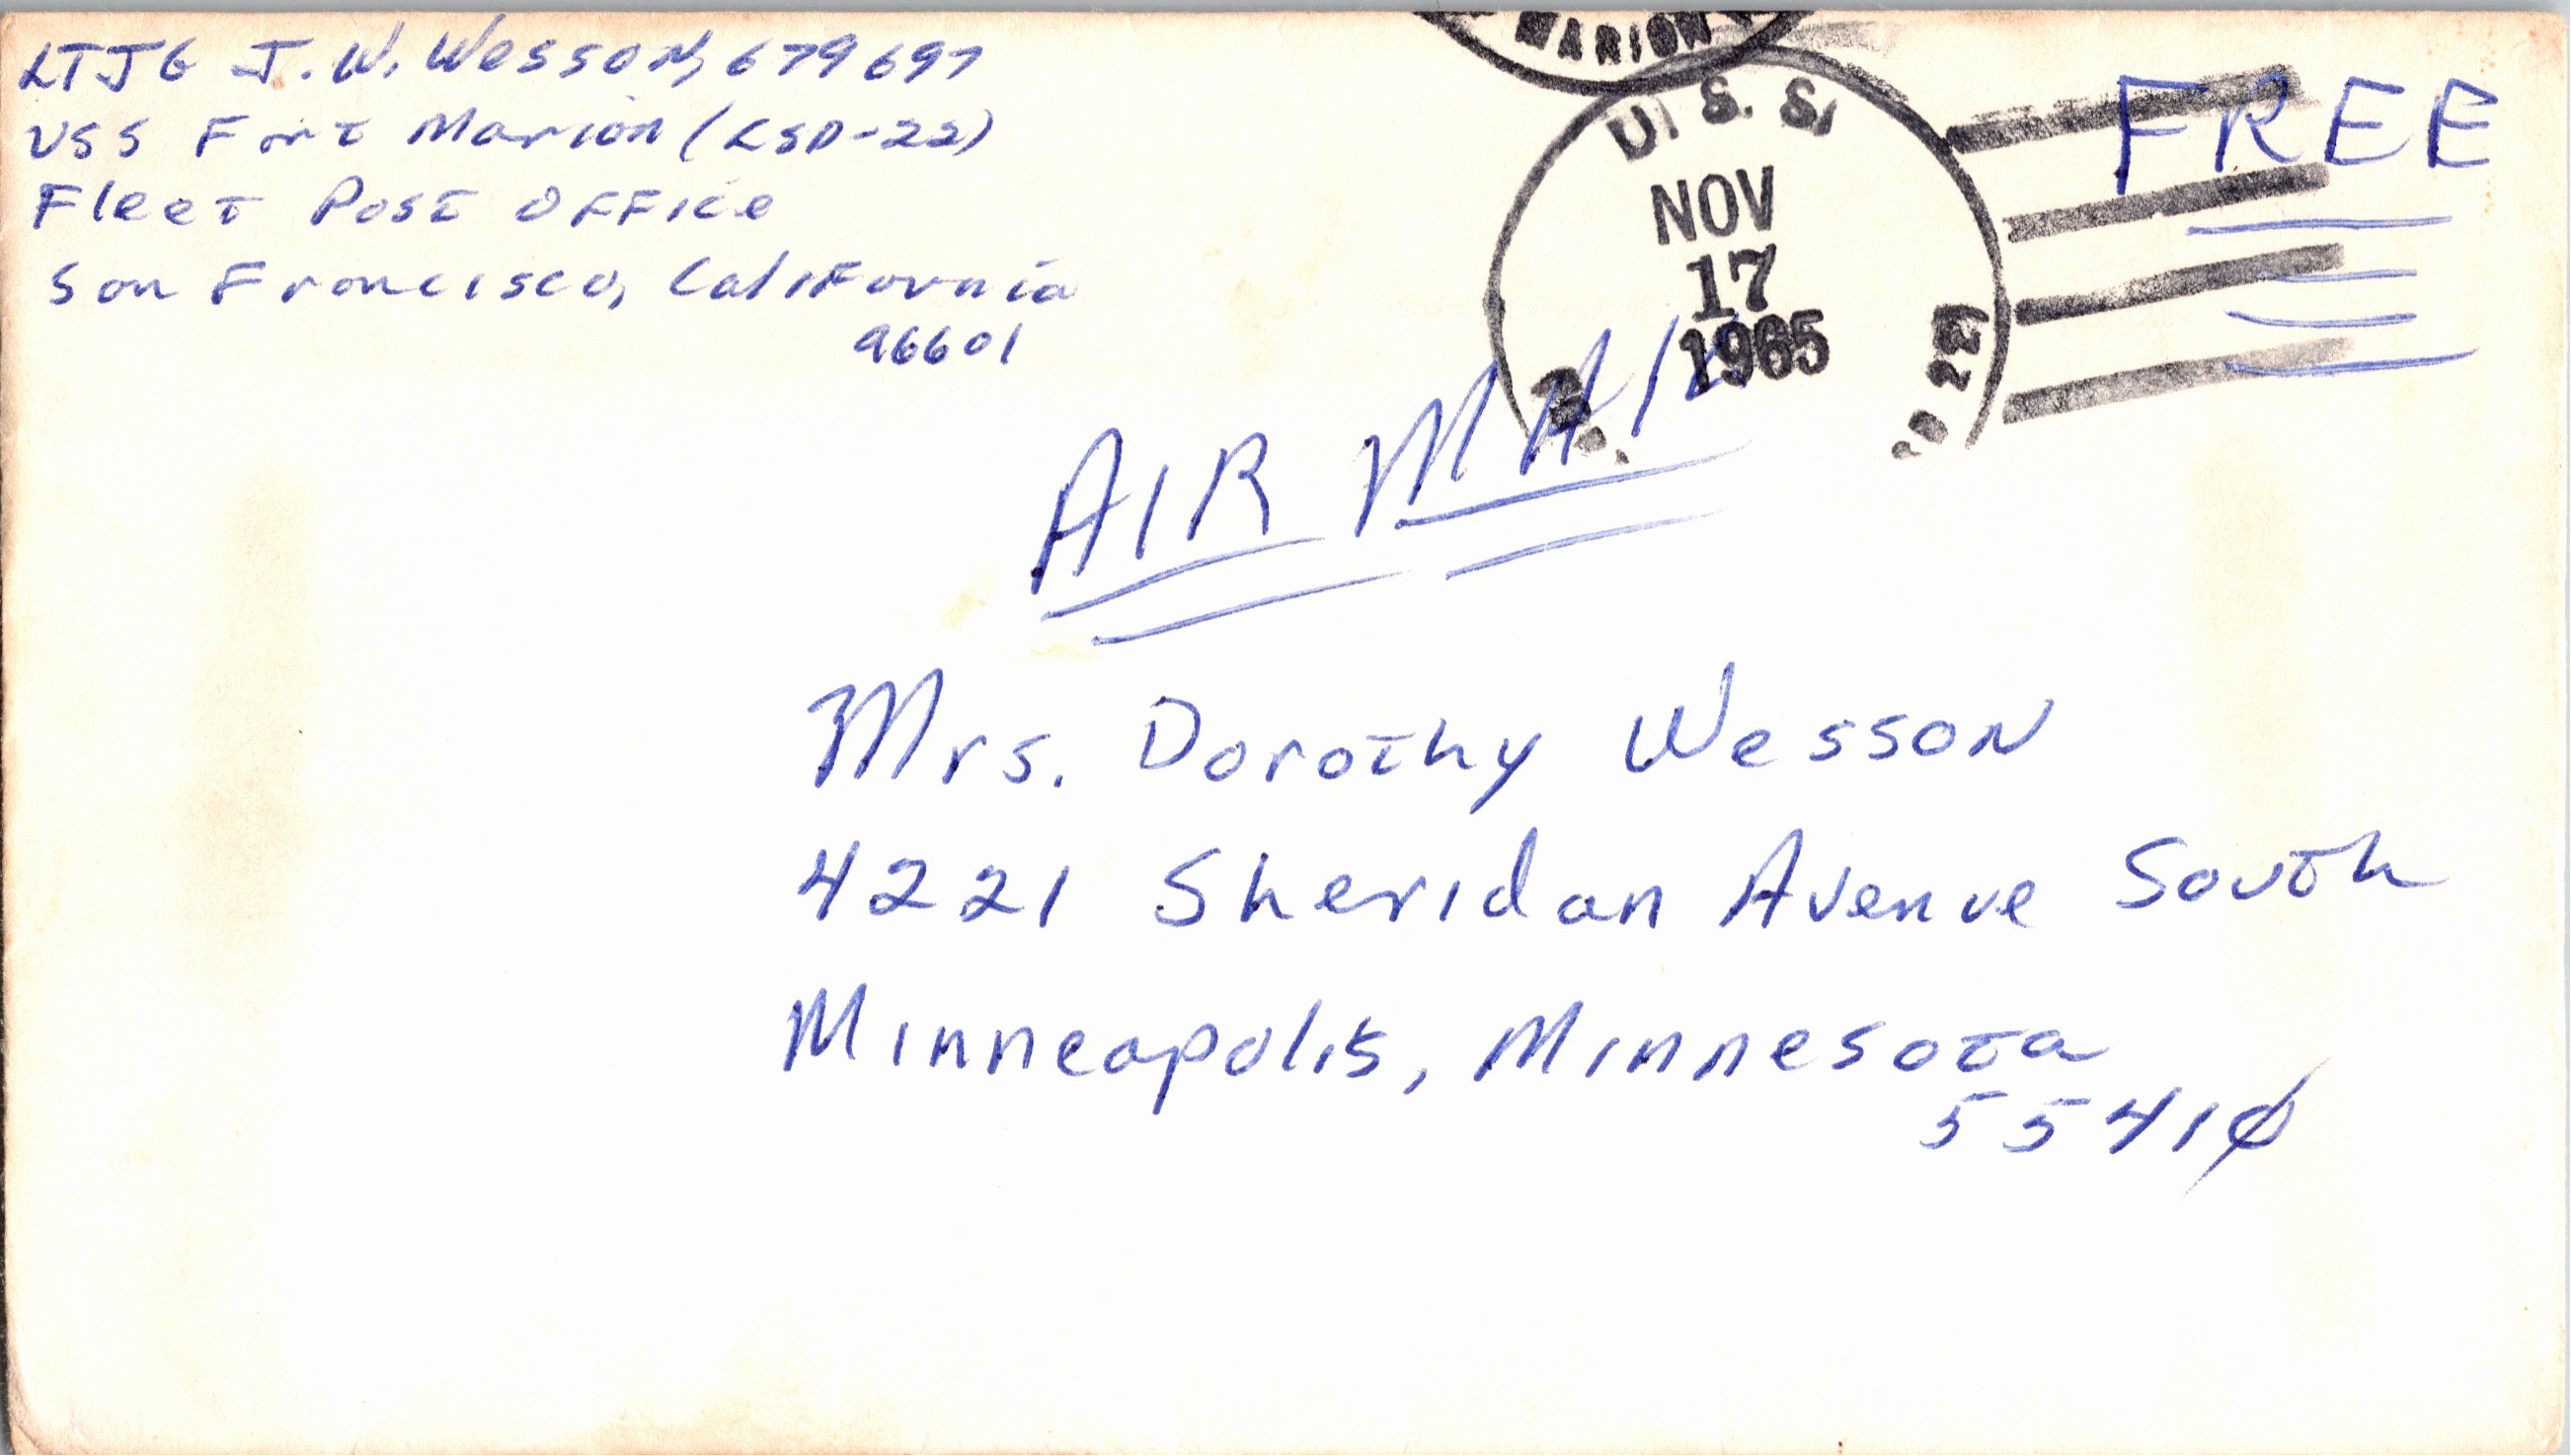 LTJG J. W. Wesson, 679697
USS Fort Marion (LSD-22)
Fleet Post Office
San Francisco, California
96601
MARION
U. S. S.
NOV
17
1965
22)
FREE
AIR MAIL
Mrs. Dorothy Wesson
4221 Sheridan Avenue South
Minneapolis, Minnesota
55410